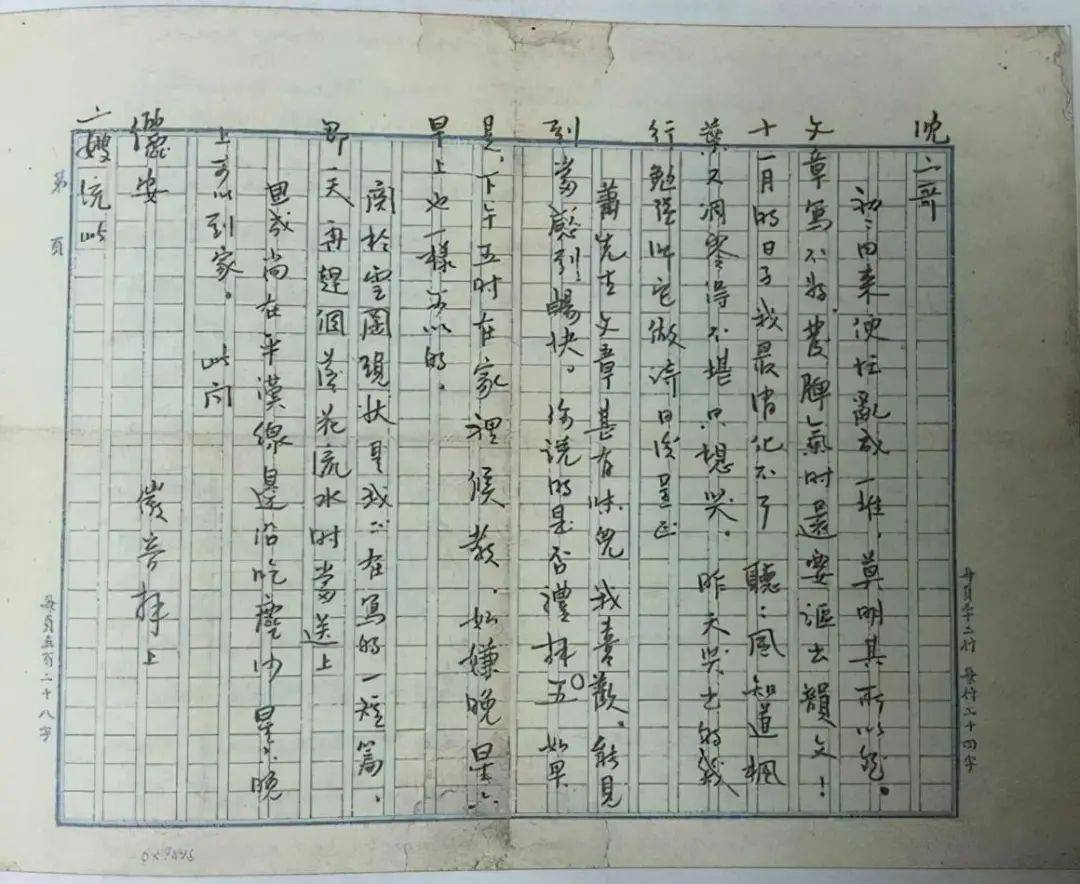 沈二哥
初二回来便忙亂成一堆，莫明其所以然。
文章寫不好，發脾氣时還要謳出韻文！
十一月的日子我最消化不了，聽二風知道楓
葉又凋零得不堪只想哭。昨天哭出的幾
行勉强叫它做诗日後呈正
蕭先生文章甚有味兒我喜歡。能見
到當感到暢快。你说的是否禮拜五。如果
是，下午五时在家裡候教，如嫌晚星六
早上也一樣可以的。
関於雲岡現状是我正在寫的一短篇，
那一天再趕個落花流水时當送上
思成尚在平漢線邊沿吃塵沙星六晚
上可以到家。
此问
儷安
徽音拜上
二嫂统此
第 頁
每頁五百二十八字
每頁二十二行 每行二十四字